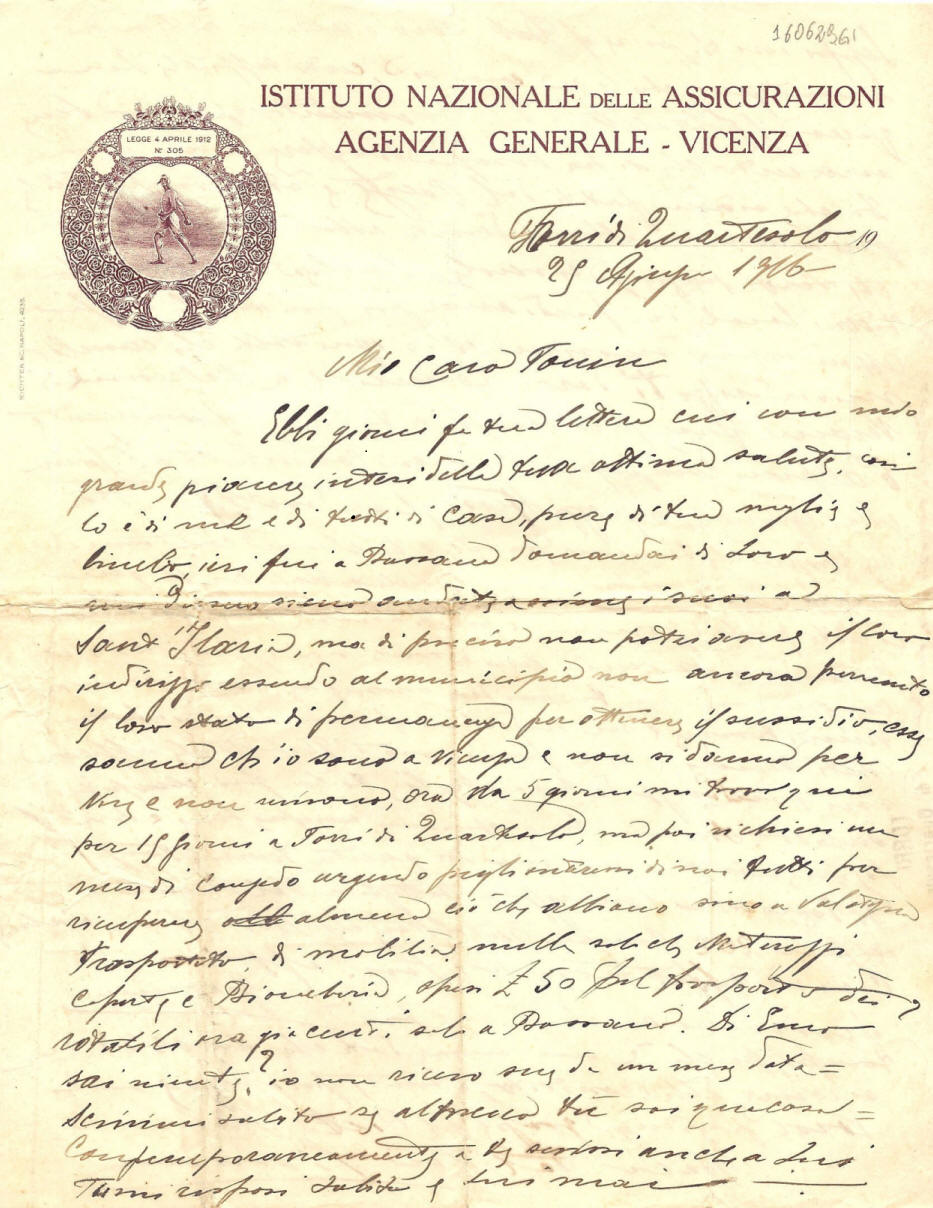 16062961
ISTITUTO NAZIONALE DELLE ASSICURAZIONI
AGENZIA GENERALE - VICENZA
LEGGE 4 APRILE 1912
N° 305
RICHTER & C. NAPOLI, 4235
Torri di Quartesolo 19
25 Giugno 1916
Mio Caro Tonin
Ebbi giorni fa tua lettera cui con mio
grande piacere intesi della tua ottima salute, così
lo è di me e di tutti di casa, pure di tua moglie e
bimbo, ieri fui a Bassano domandai di Loro e
siano i suoi a
Sant'Ilario, ma di preciso non potei avere il loro
indirizzo essendo al municipio non ancora pervenuto
il loro stato di permanenza per ottenere il sussidio, esse
sanno ch'io sono a Vicenza e non si danno per
e non scrivono, ora da 5 giorni mi trovo qui
per 15 giorni a Torri di Quartesolo, ma poi richiesi un
mese di congedo urgendo pegl'interessi di noi tutti per
ricuperare almeno ciò che abbiamo sino a Valstagna
trasportato, di mobilia nulla solo che Materassi
coperte e Biancheria, spesi £ 50 pel trasporto dei
rotabili ora giacenti solo a Bassano. Di
sai niente? io non ricevo sue da un mese data=
scrivimi subito se almeno tu sai qualcosa=
Contemporaneamente a te scrissi anche a Lui
Tu mi risposi subito e Lui mai